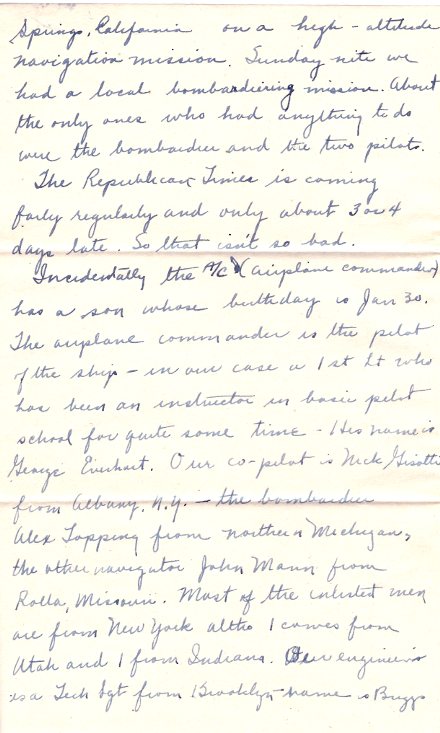 Springs, California on a high-altitude
navigation mission. Sunday nite we
had a local bombardiering mission. About
the only ones who had anything to do
were the bombardier and the two pilots.
The Republican Times is coming
fairly regularly and only about 3 or 4
days late. So that isn't so bad.
Incidentally the A/C (airplane commander)
has a son whose birthday is Jan 30.
The airplane commander is the pilot
of the ship - in our case a 1st Lt who
has been an instructor in basic pilot
school for quite some time - His name is
George Everhart. Our co-pilot is Nick Gisotti
from Albany, N.Y. - the bombardier
Alex Topping from northern Michigan,
the other navigator John Mann from
Rolla, Missouri. Most of the enlisted men
are from New York altho 1 comes from
Utah and 1 from Indiana. Our engineer
is a Tech Sgt from Brooklyn - name is Briggs